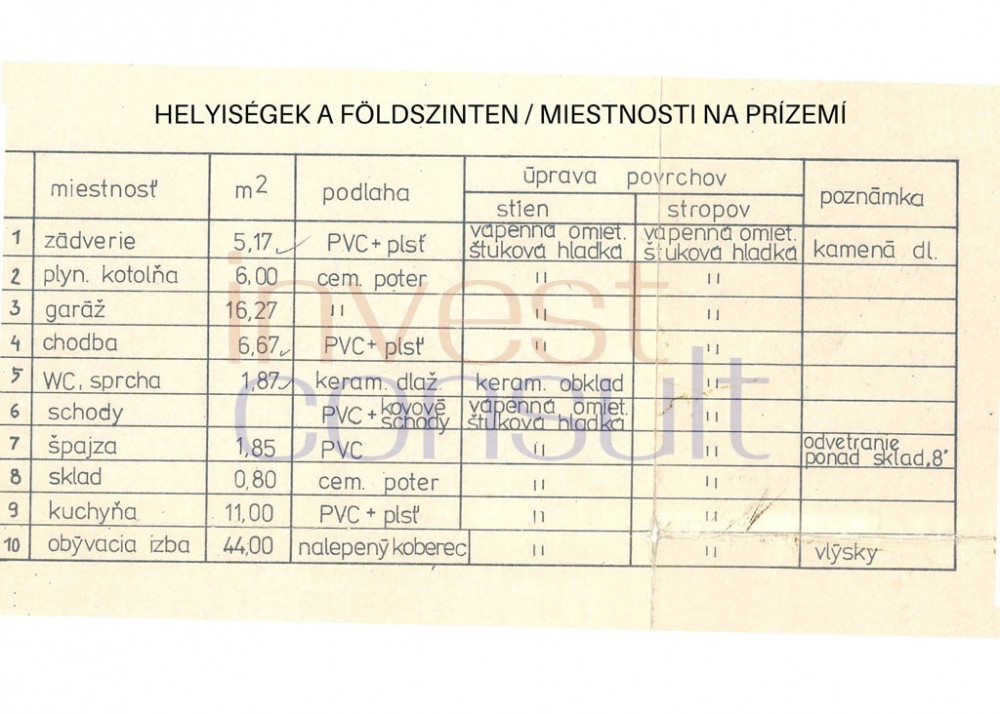 HELYISÉGEK A FÖLDSZINTEN / MIESTNOSTI NA PRÍZEMÍ
miestnosť m2 podlaha úprava povrchov poznámka
stien stropov
1 zádverie 5,17 PVC + plsť vápenná omiet. štuková hladká vápenná omiet. štuková hladká kamená dl.
2 plyn. kotolňa 6,00 cem. poter " "
3 garáž 16,27 " " "
4 chodba 6,67 PVC + plsť " "
5 WC, sprcha 1,87 keram. dlaž. keram. obklad "
6 schody PVC + kovové schody vápenná omiet. štuková hladká "
7 špajza 1,85 PVC " " odvetranie ponad sklad „8"
8 sklad 0,80 cem. poter " "
9 kuchyňa 11,00 PVC + plsť " "
10 obývacia izba 44,00 nalepený koberec " " vlýsky
invest
consult